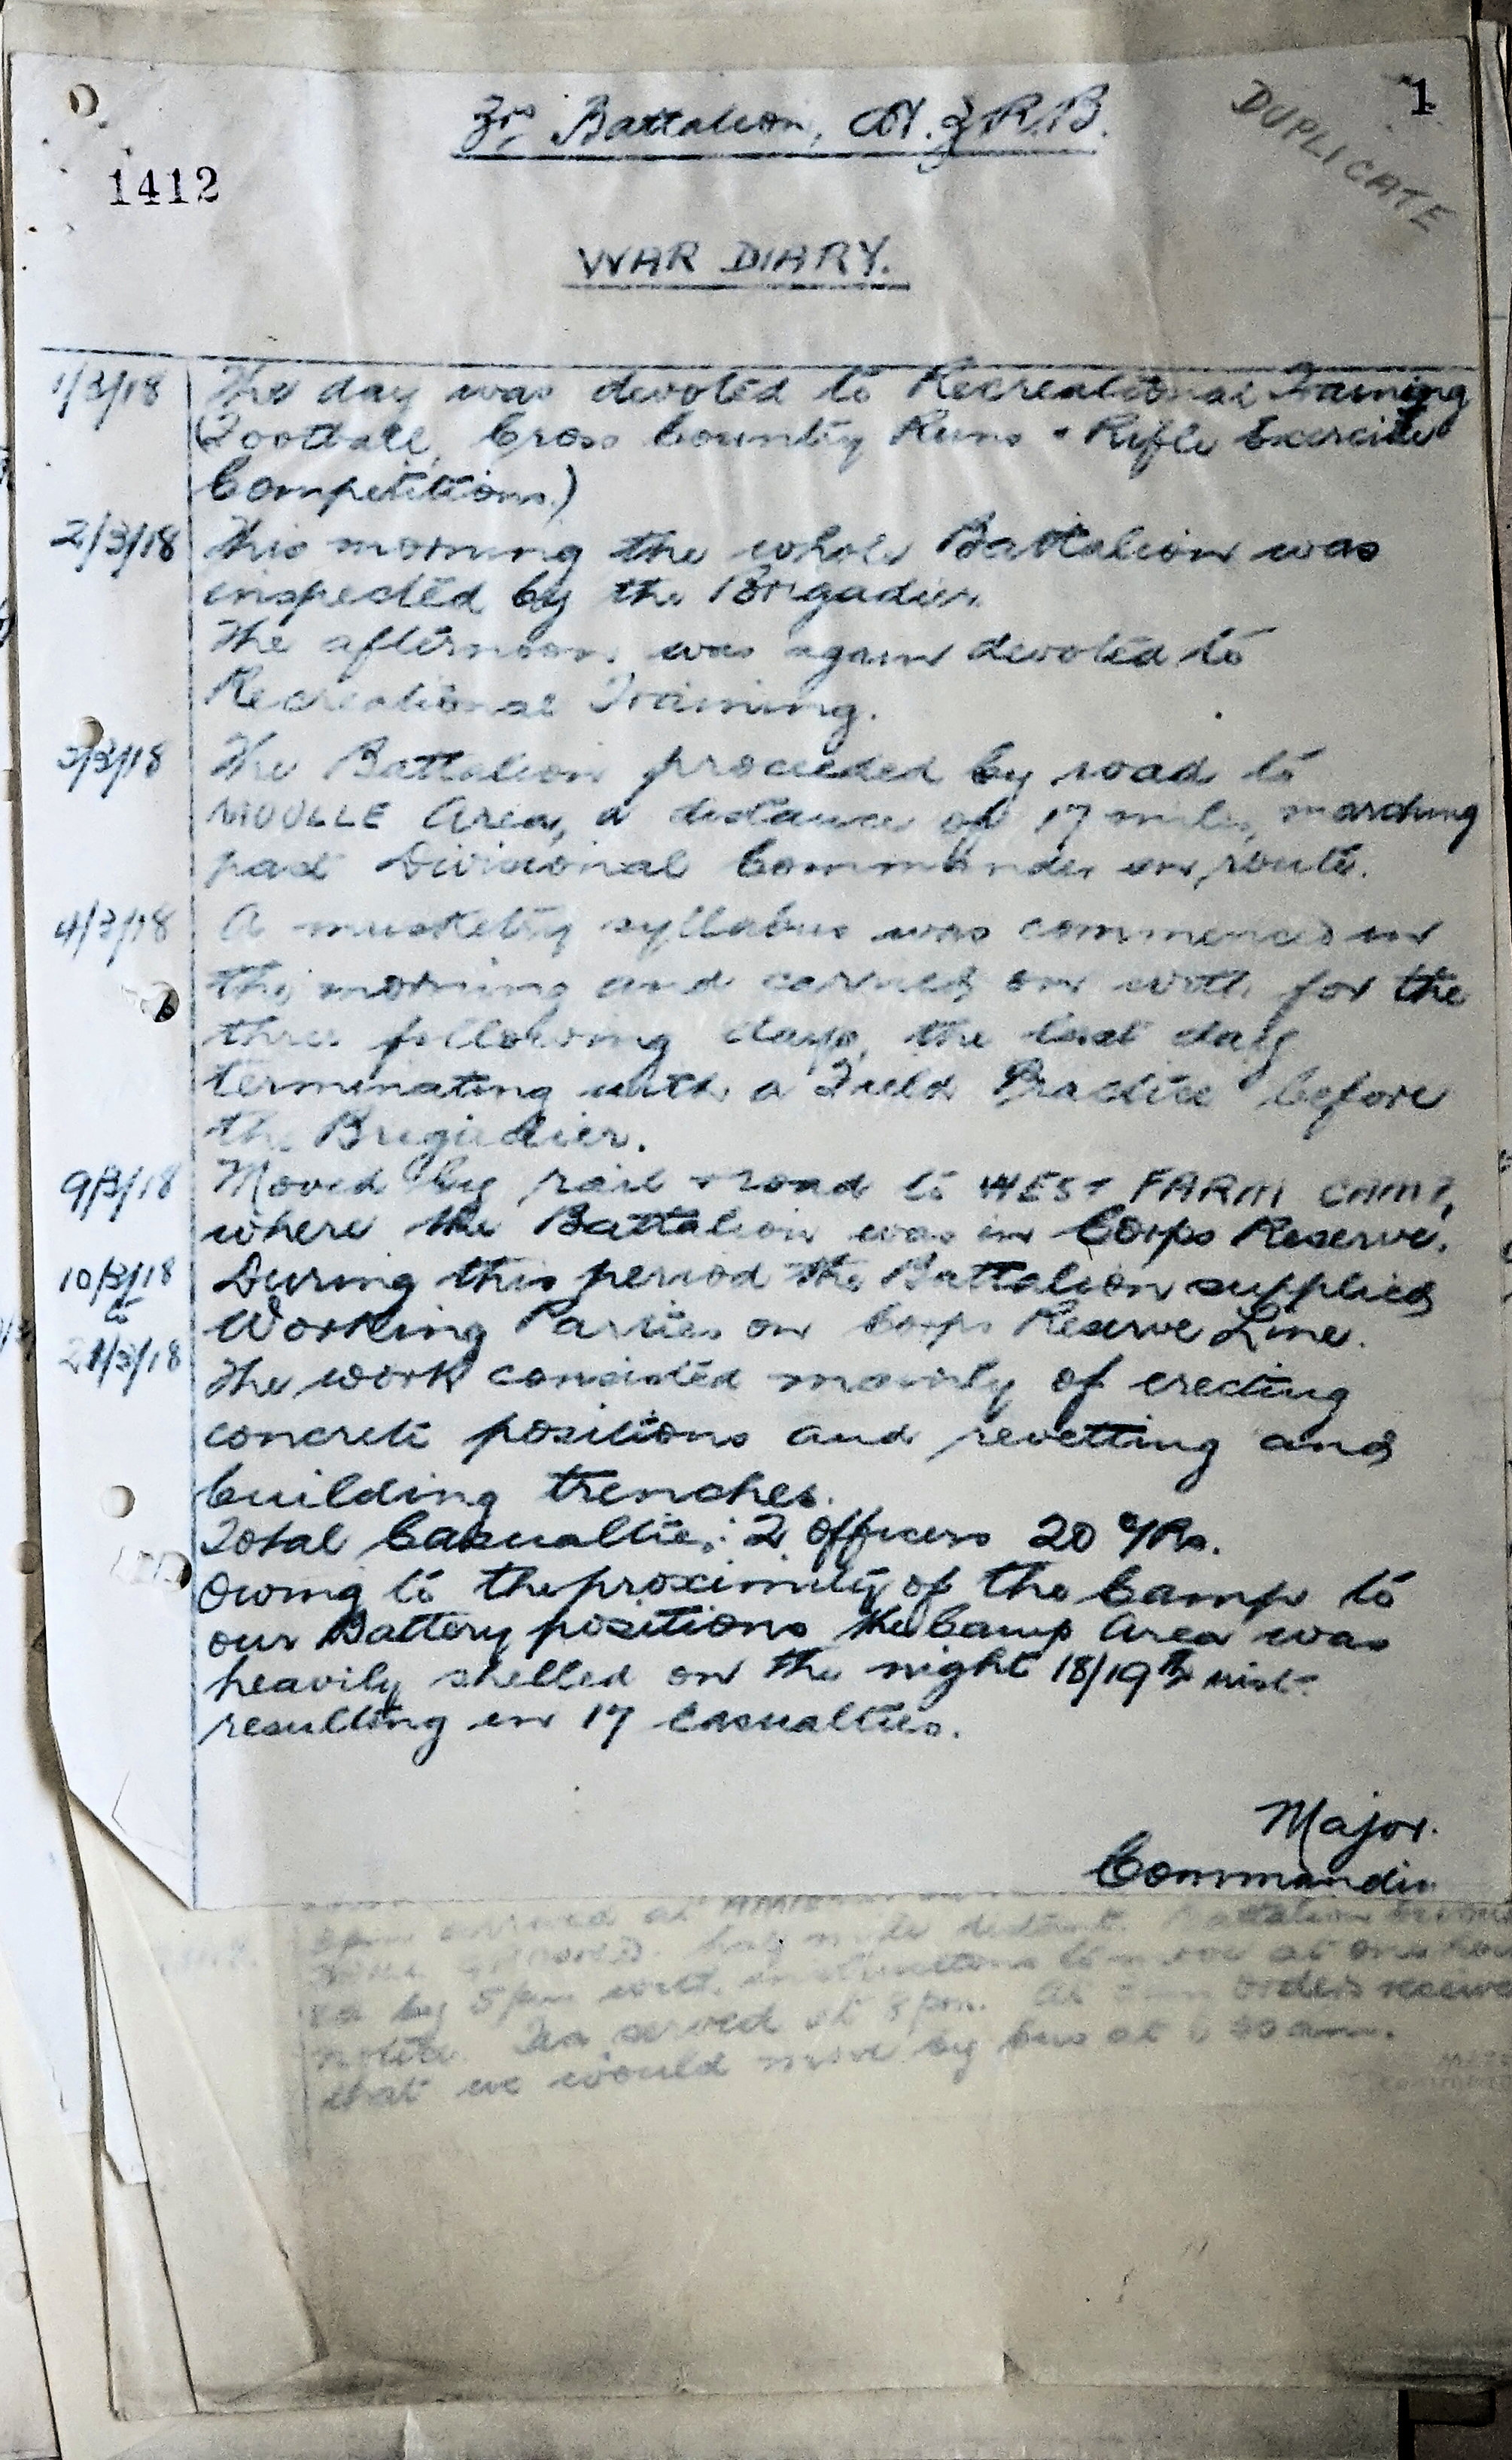 3rd Battalion, N.Z.R.B.
1
DUPLICATE
1412
WAR DIARY.
1/3/18 The day was devoted to Recreational Training
(Football, Cross Country Runs + Rifle Exercise
Competitions.)
2/3/18 This morning the whole Battalion was
inspected by the Brigadier.
The afternoon was again devoted to
Recreational Training.
3/3/18 The Battalion proceeded by road to
MOULLE Area, a distance of 17 miles, marching
past Divisional Commander en route.
4/3/18 A musketry syllabus was commenced in
the morning and carried on with for the
three following days, the last day
terminating with a Field Practice before
the Brigadier.
9/3/18 Moved by rail + road to WEST FARM CAMP,
where the Battalion was in Corps Reserve.
10/3/18 During this period the Battalion supplied
to Working Parties on Corps Reserve Line.
21/3/18 The work consisted mainly of erecting
concrete positions and revetting and
building trenches.
Total Casualties: 2 Officers 20 O/Rs.
Owing to the proximity of the Camp to
our Battery positions the Camp Area was
heavily shelled on the night 18/19th inst.
resulting in 17 casualties.
Major.
Commandin
arrived at
half mile distant. Battalion
by 5 pm with instructions to move at one hour
notice. Tea served at 8 pm. At orders receive
that we would move by bus at 6 30 am.